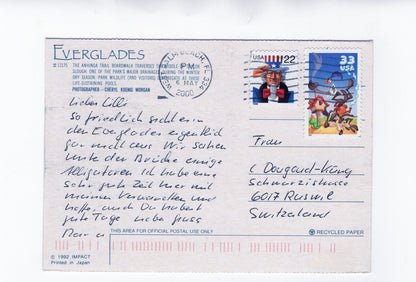 EVERGLADES
© 12175 THE ANHINGA TRAIL BOARDWALK TRAVERSES
SLOUGH, ONE OF THE PARK'S MAJOR DRAINAGES DURING THE WINTER
DRY SEASON. PARK WILDLIFE CONGREGATES AT THESE
LIFE-SUSTAINING POOLS.
PHOTOGRAPHER - CHERYL KOENIG MORGAN
WEST PALM BEACH, FL 334
PM
6 MAY
2000
USA 22
33
USA
Liebe Lilli
So friedlich sieht es in
den Everglades eigentlich
gar nicht aus. Wir sahen
unter der Brücke einige
Alligatoren. Ich habe eine
sehr gute Zeit hier mit
meinen Verwandten und
hoffe, auch Du habest
gute Tage
Frau
C Dougoud-König
Schwarzishusse
6017 Ruswil
Switzerland
THIS AREA FOR OFFICIAL POSTAL USE ONLY
RECYCLED PAPER
© 1992 IMPACT
Printed in Japan